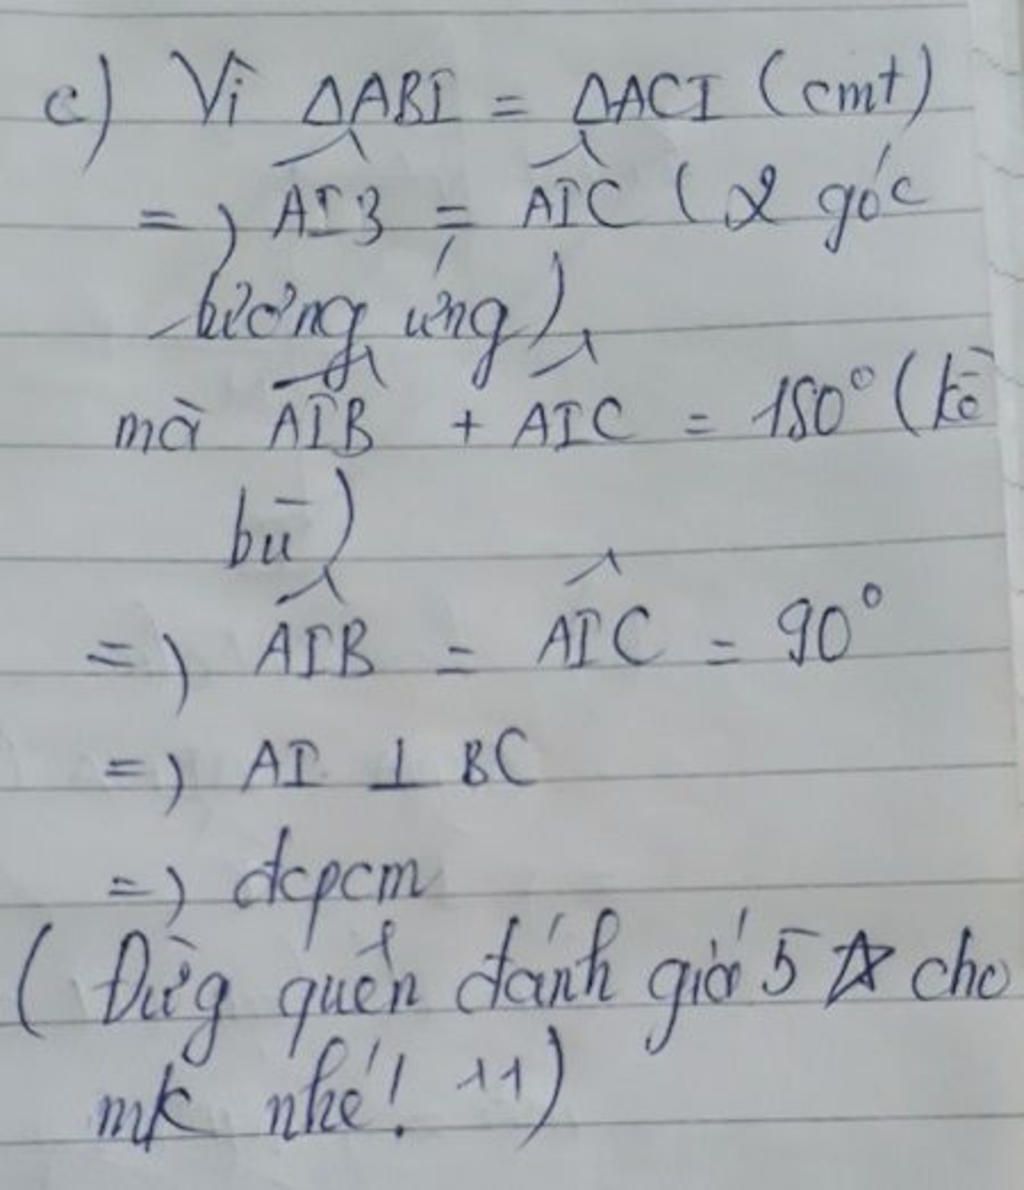 c) Vì ΔABI = ΔACI (cmt)
=) \widehat{AIB} = \widehat{AIC} (2 góc
tương ứng)
mà \widehat{AIB} + \widehat{AIC} = 180° (kề
bù)
=) \widehat{AIB} = \widehat{AIC} = 90°
=) AI ⊥ BC
=) đcpcm
( Đừg quên đánh giá 5 ☆ cho
mk nhé! ^^)